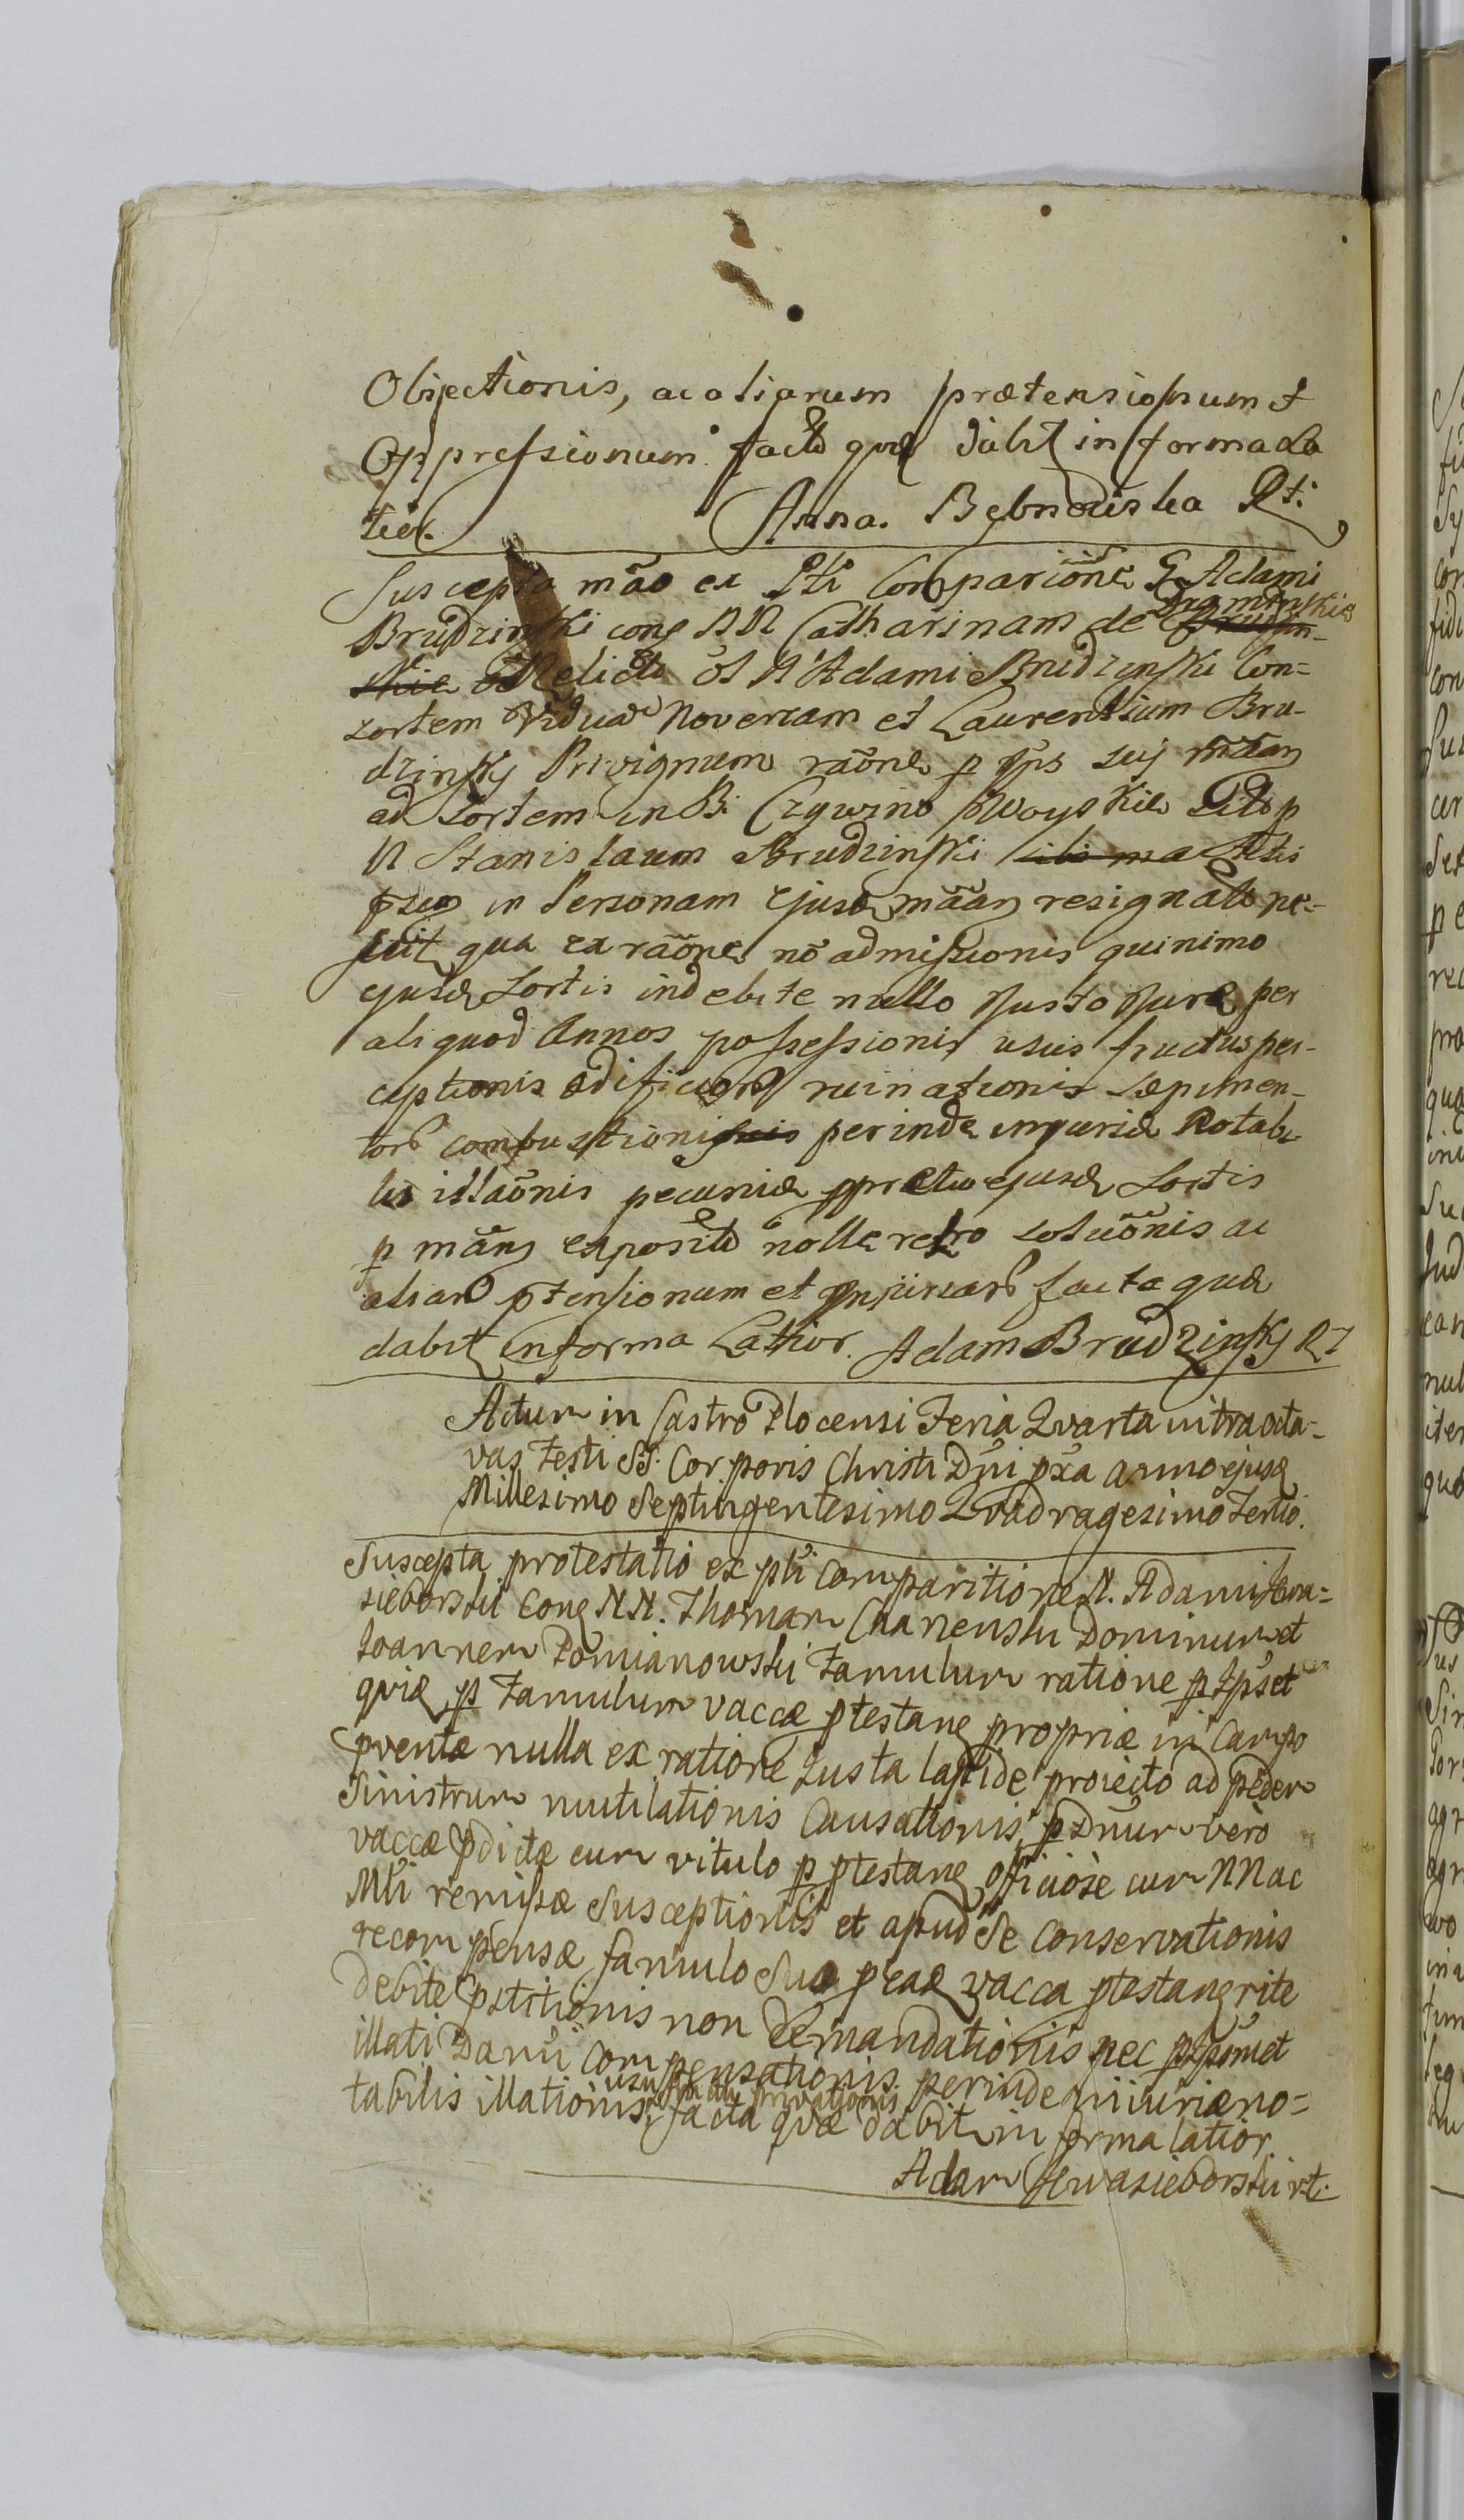 Objectionis, ac aliarum prætensionum et
Oppressionum facta quæ dabit in forma la
tior. Anna
Suscepta mão ex Pti Compariõne G Adami
Brudzinski cong NN Catharinam de
Relicta ol N Adami Brudzinski Con=
sortem Viduã Novercam et Laurentium Bru-
dzinsky Privignum raõne p Ipsos
ad Sortem in B. p
N Stanislaum Brudzinski
in Personam ejusd mãan resignata
qua ex raõne nõ admissionis quinimo
ejusd Sortis indebite nullo Justo Jure per
aliquod Annos possessionis usus fructus per-
ceptionis ædificior ruinationis sæpimen-
tor combustionis perinde injuriæ Notabi
lis illaõnis pecuniæ pretio ejusd Sortis
p mãan exposita nolle retro soluõnis ac
aliar ptensionum et Injuriar facta quæ
dabit in forma Latior. Adam Brudzinsky RT
Actum in Castro Plocensi Feria Qvarta intra octa-
vas Festi SS: Corporis Christi Dni pxa anno ejusd
Millesimo Septingentesimo Qvadragesimo Tertio.
Suscepta protestatio ex pti comparitione N. Adami Kwa=
sieborski Cong NN. Thomam Dominum et
Joannem Pomianowski Famulum ratione p Ipset
quiæ p Famulum vaccæ ptestang propriæ in Campo
pventæ nulla ex ratione Justa lapide proiecto ad pedem
sinistrum mutilationis causationis p Dnum vero
vaccæ pdictæ cum vitulo p ptestang officiose cum NN ac
Mti remissæ Susceptionis et apud Se conservationis
recompensæ famulo Suo vacca ptestang rite
debite ptitionis non demandationis nec
illati Damni compensationis perinde injuriæ no=
usu fructu privationis
tabilis illationis facta quæ dabit in forma latior.
Adam Kwasieborski rt.